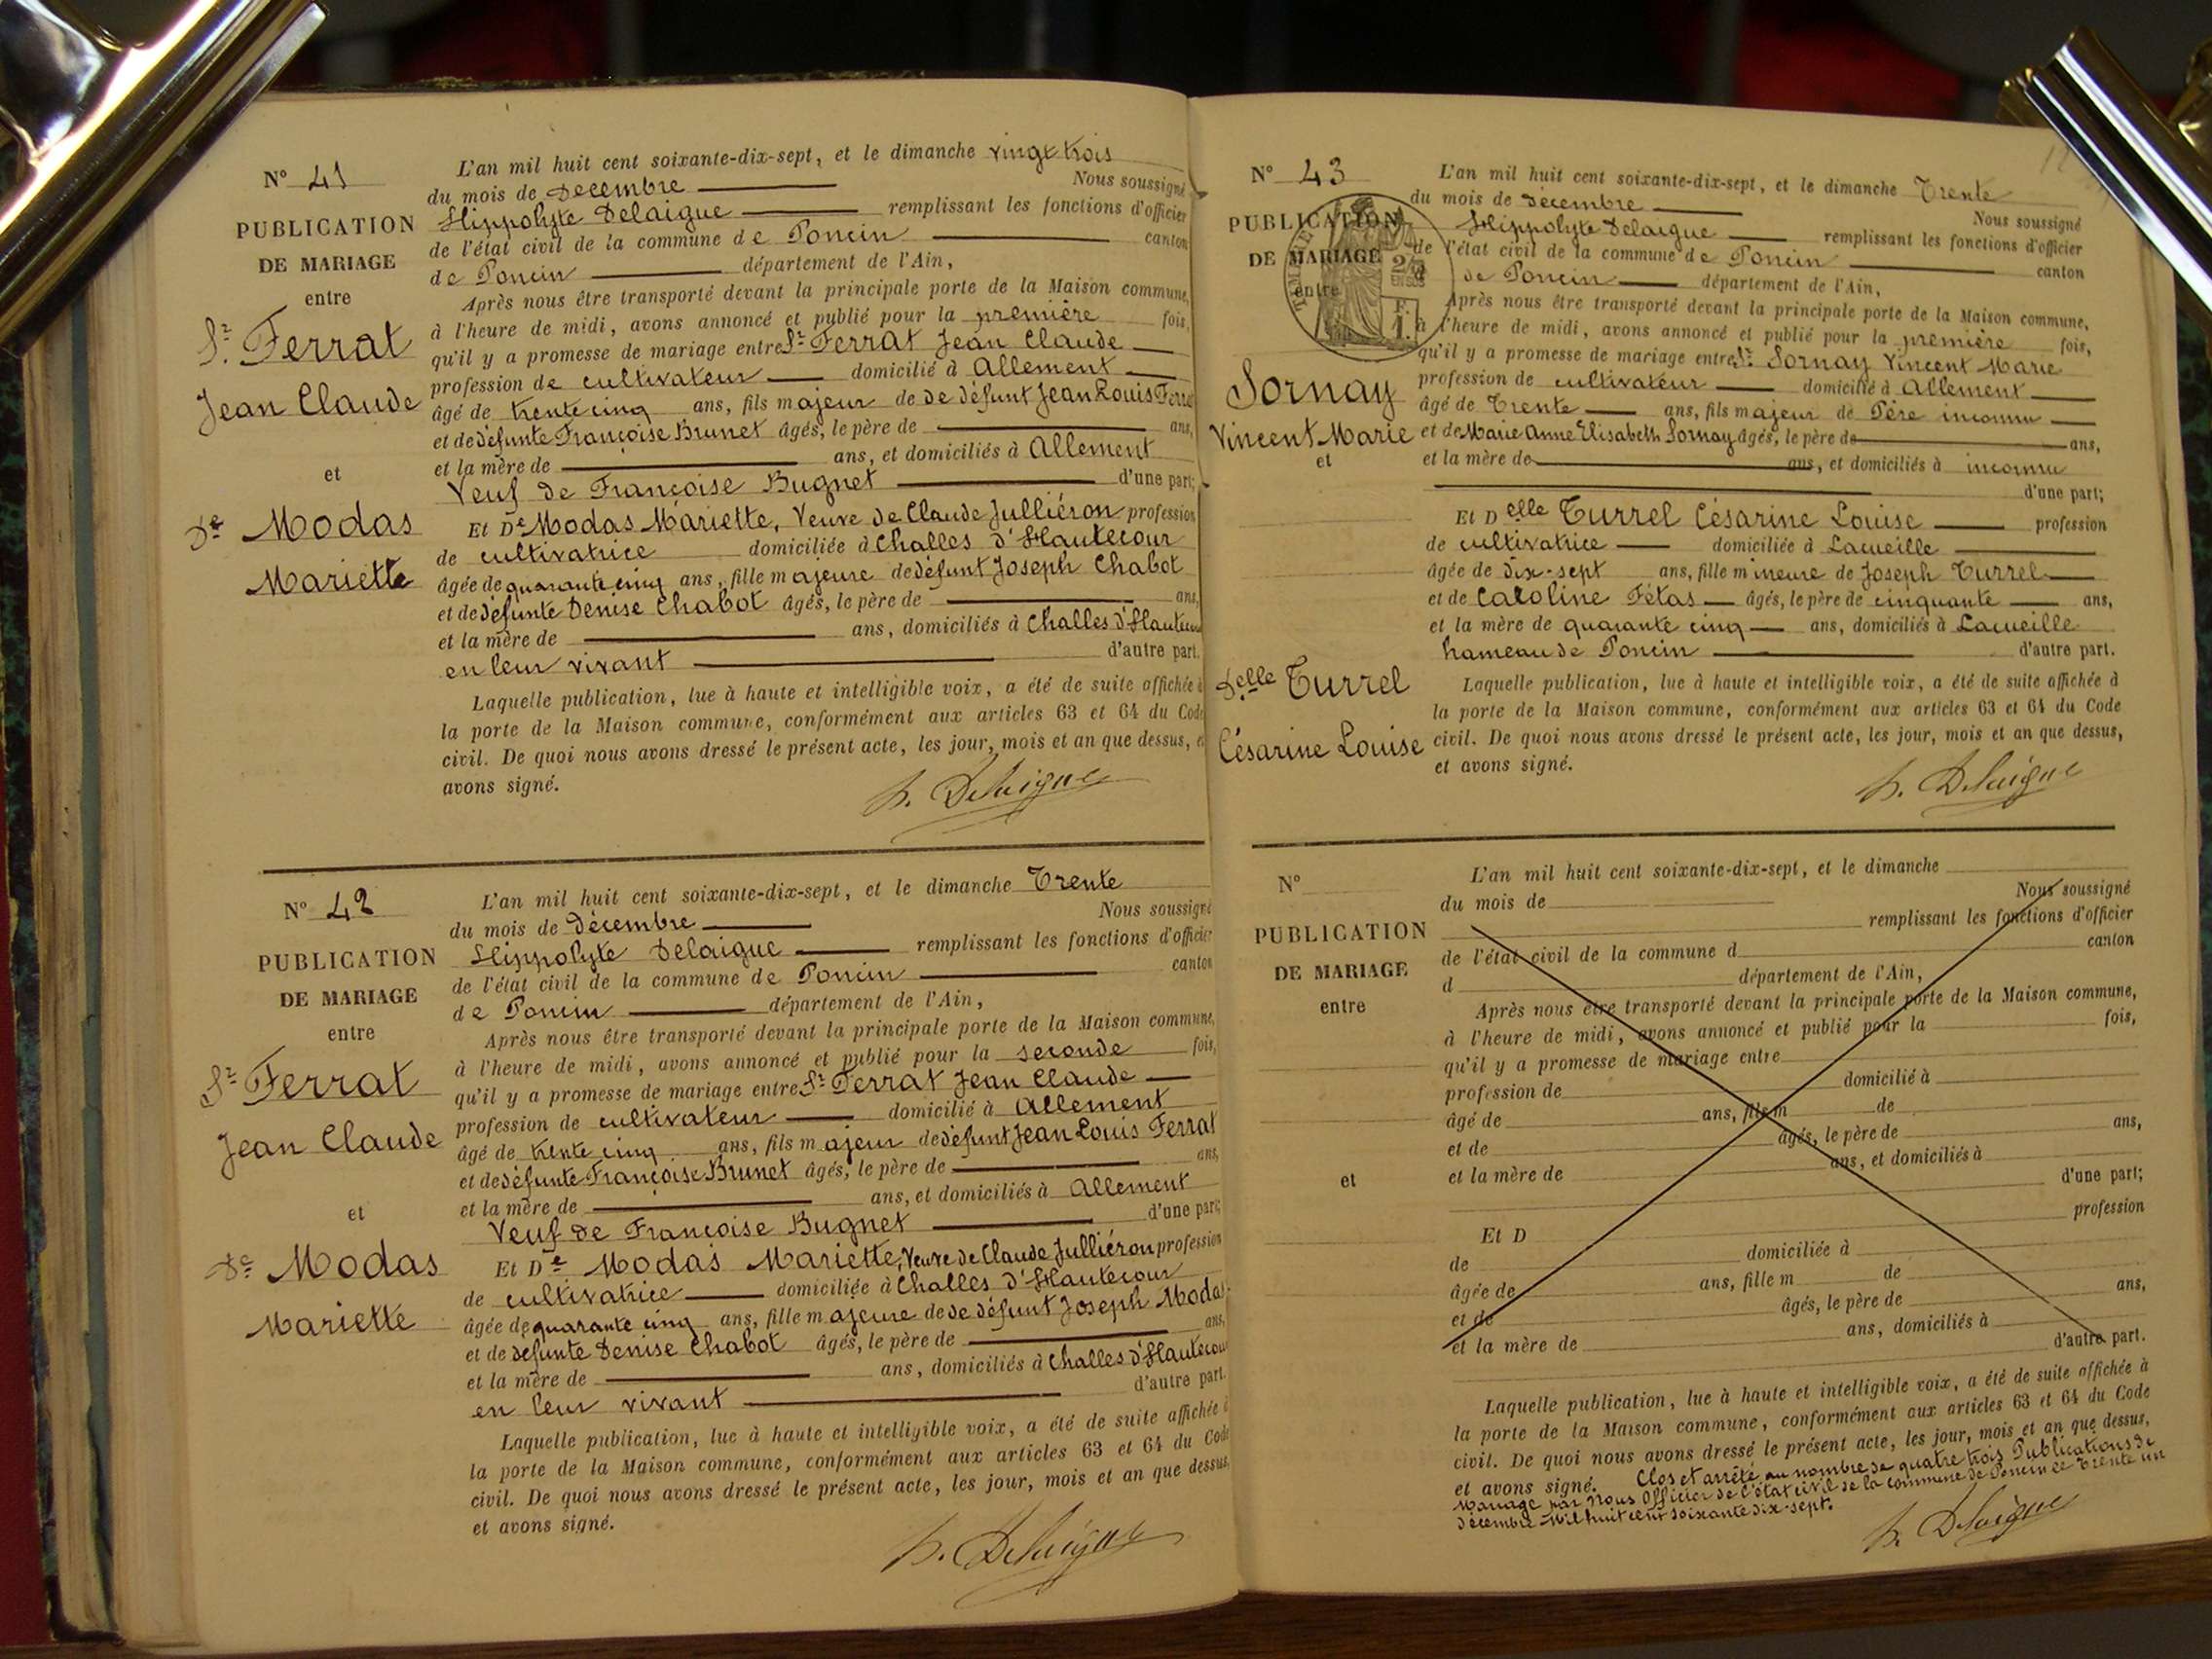 N° 41
PUBLICATION
DE MARIAGE
entre
Sr Ferrat
Jean Claude
et
De Modas
Mariette
L'an mil huit cent soixante-dix-sept, et le dimanche vingt trois
du mois de Décembre Nous soussigné
Hippolyte Delaigue remplissant les fonctions d'officier
de l'état civil de la commune de Poncin canton
de Poncin département de l'Ain,
Après nous être transporté devant la principale porte de la Maison commune,
à l'heure de midi, avons annoncé et publié pour la première fois,
qu'il y a promesse de mariage entre Sr Ferrat Jean Claude
profession de cultivateur domicilié à Allement
âgé de trente cinq ans, fils majeur de de défunt Jean Louis Ferra
et de défunte Françoise Brunet âgés, le père de ans,
et la mère de ans, et domiciliés à Allement
Veuf de Françoise Bugnet d'une part;
Et De Modas Mariette, Veuve de Claude Julliéron profession
de cultivatrice domiciliée à Challes d'Hautecour
âgée de quarante cinq ans, fille majeure de défunt Joseph Chabot
et de défunte Denise Chabot âgés, le père de ans,
et la mère de ans, domiciliés à Challes d'Hautecour
en leur vivant d'autre part.
Laquelle publication, lue à haute et intelligible voix, a été de suite affichée à
la porte de la Maison commune, conformément aux articles 63 et 64 du Code
civil. De quoi nous avons dressé le présent acte, les jour, mois et an que dessus, et
avons signé.
h. Delaigue
N° 42
PUBLICATION
DE MARIAGE
entre
Sr Ferrat
Jean Claude
et
De Modas
Mariette
L'an mil huit cent soixante-dix-sept, et le dimanche Trente
du mois de Décembre Nous soussigné
Hippolyte Delaigue remplissant les fonctions d'officier
de l'état civil de la commune de Poncin canton
de Poncin département de l'Ain,
Après nous être transporté devant la principale porte de la Maison commune,
à l'heure de midi, avons annoncé et publié pour la seconde fois,
qu'il y a promesse de mariage entre Sr Ferrat Jean Claude
profession de cultivateur domicilié à Allement
âgé de trente cinq ans, fils majeur de défunt Jean Louis Ferrat
et de défunte Françoise Brunet âgés, le père de ans,
et la mère de ans, et domiciliés à Allement
Veuf de Françoise Bugnet d'une part;
Et De Modas Mariette, Veuve de Claude Julliéron profession
de cultivatrice domiciliée à Challes d'Hautecour
âgée de quarante cinq ans, fille majeure de de défunt Joseph Modas
et de défunte Denise Chabot âgés, le père de ans,
et la mère de ans, domiciliés à Challes d'Hautecour
en leur vivant d'autre part.
Laquelle publication, lue à haute et intelligible voix, a été de suite affichée à
la porte de la Maison commune, conformément aux articles 63 et 64 du Code
civil. De quoi nous avons dressé le présent acte, les jour, mois et an que dessus,
et avons signé.
h. Delaigue
N° 43
PUBLICATION
DE MARIAGE
entre
Sornay
Vincent Marie
et
Delle Turrel
Césarine Louise
L'an mil huit cent soixante-dix-sept, et le dimanche Trente
du mois de Décembre Nous soussigné
Hippolyte Delaigue remplissant les fonctions d'officier
de l'état civil de la commune de Poncin canton
de Poncin département de l'Ain,
Après nous être transporté devant la principale porte de la Maison commune,
à l'heure de midi, avons annoncé et publié pour la première fois,
qu'il y a promesse de mariage entre Sr Sornay Vincent Marie
profession de cultivateur domicilié à Allement
âgé de Trente ans, fils majeur de Père inconnu
et de Marie Anne Elisabeth Sornay âgés, le père de ans,
et la mère de ans, et domiciliés à inconnu
d'une part;
Et Delle Turrel Césarine Louise profession
de cultivatrice domiciliée à Lacueille
âgée de dix-sept ans, fille mineure de Joseph Turrel
et de Caroline Fétas âgés, le père de cinquante ans,
et la mère de quarante cinq ans, domiciliés à Lacueille
hameau de Poncin d'autre part.
Laquelle publication, lue à haute et intelligible voix, a été de suite affichée à
la porte de la Maison commune, conformément aux articles 63 et 64 du Code
civil. De quoi nous avons dressé le présent acte, les jour, mois et an que dessus,
et avons signé.
h. Delaigue
N°
PUBLICATION
DE MARIAGE
entre
et
L'an mil huit cent soixante-dix-sept, et le dimanche
du mois de Nous soussigné
remplissant les fonctions d'officier
de l'état civil de la commune d canton
d département de l'Ain,
Après nous être transporté devant la principale porte de la Maison commune,
à l'heure de midi, avons annoncé et publié pour la fois,
qu'il y a promesse de mariage entre
profession de domicilié à
âgé de ans, fils m de
et de âgés, le père de ans,
et la mère de ans, et domiciliés à
d'une part;
Et D profession
de domiciliée à
âgée de ans, fille m de
et de âgés, le père de ans,
et la mère de ans, domiciliés à
d'autre part.
Laquelle publication, lue à haute et intelligible voix, a été de suite affichée à
la porte de la Maison commune, conformément aux articles 63 et 64 du Code
civil. De quoi nous avons dressé le présent acte, les jour, mois et an que dessus,
et avons signé. Clos et arrêté au nombre de quatre trois Publications de
Mariage par Nous Officier de l'état civil de la commune de Poncin ce Trente un
décembre Mil huit cent soixante dix-sept.
h. Delaigue